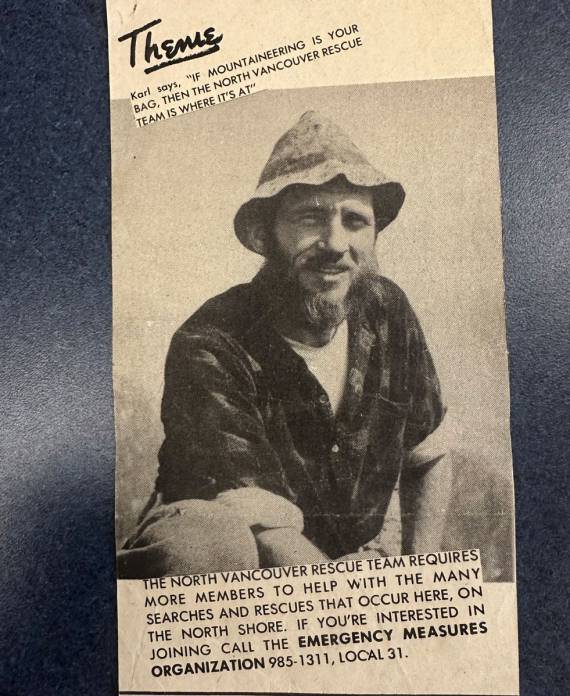 Theme
Karl says, "IF MOUNTAINEERING IS YOUR
BAG, THEN THE NORTH VANCOUVER RESCUE
TEAM IS WHERE IT'S AT"
THE NORTH VANCOUVER RESCUE TEAM REQUIRES
MORE MEMBERS TO HELP WITH THE MANY
SEARCHES AND RESCUES THAT OCCUR HERE, ON
THE NORTH SHORE. IF YOU'RE INTERESTED IN
JOINING CALL THE EMERGENCY MEASURES
ORGANIZATION 985-1311, LOCAL 31.